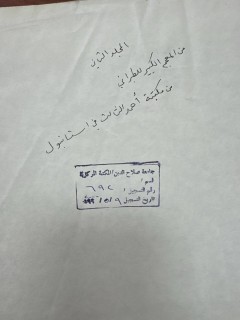 المجلد الثاني
من المعجم الكبير للطبراني
من مكتبة أحمد الثالث في استانبول
جامعة صلاح الدين / المكتبة المركزية
رقم التسجيل : ٦٩٢
تاريخ التسجيل